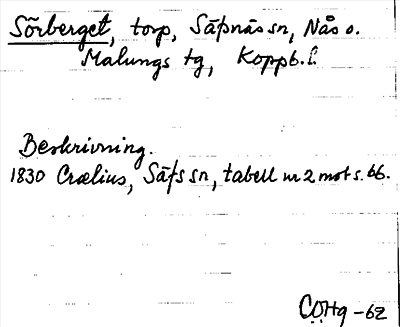 Sörberget, torp, Säfsnäs sn, Nås o.
Malungs tg, Koppb. l.
Beskrivning.
1830 Crælius, Säfs sn, tabell nr 2 mot s. 66.
COHg -62